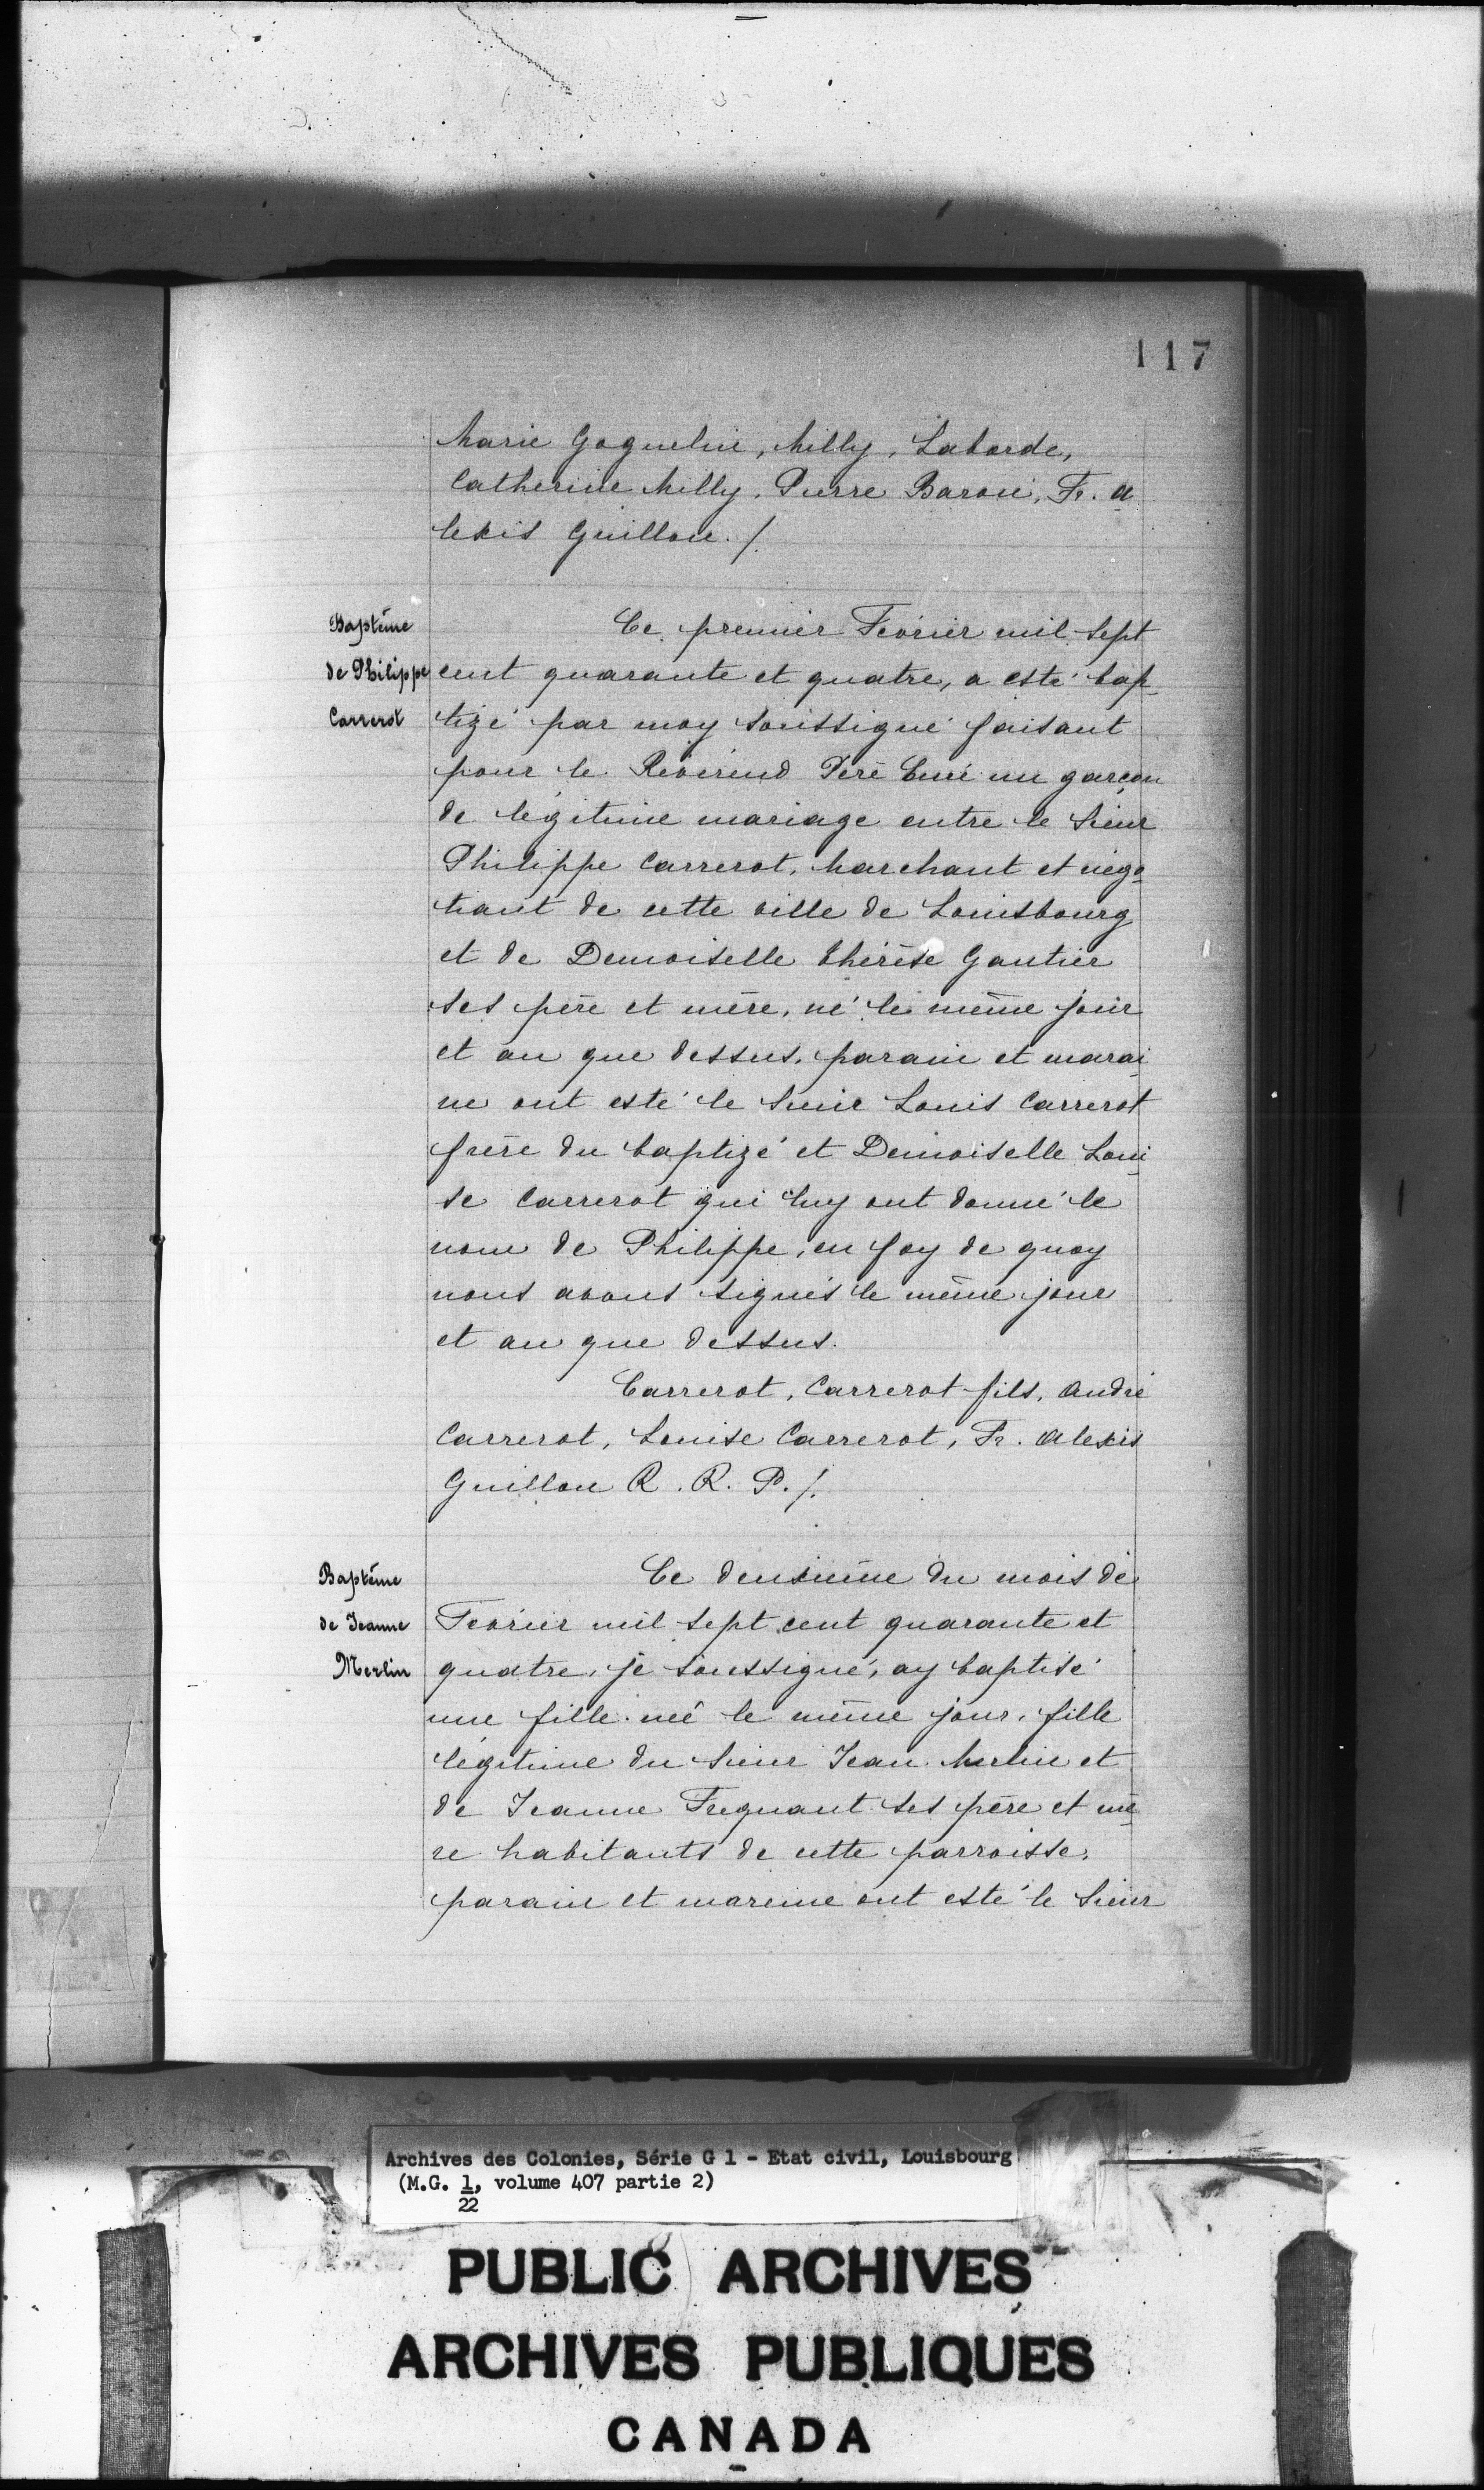 117
Marie Goguelin, Milly, Laborde,
Catherine Milly, Pierre Baron, Fr. A
lexis Guillou. /.
Baptême
de Philippe
Carrerot
Ce premier Fevrier mil sept
cent quarante et quatre, a esté bap
tizé par moy soussigné faisant
pour le Révérend Père Curé un garçon
de légitime mariage entre le Sieur
Philippe Carrerot, Marchant et négo
tiant de cette ville de Louisbourg
et de Demoiselle Thérèse Gautier
ses père et mère, né le même jour
et an que dessus. parain et marai
ne ont esté le Sieur Louis Carrerot
frère du baptizé et Demoiselle Loui
se Carrerot qui luy ont donné le
nom de Philippe, en foy de quoy
nous avons signés le même jour
et an que dessus.
Carrerot, Carrerot fils, André
Carrerot, Louise Carrerot, Fr. Alexis
Guillou R. R. P. /.
Baptême
de Jeanne
Merlin
Ce deuxième du mois de
Fevrier mil sept cent quarante et
quatre, je soussigné, ay baptisé
une fille neé le même jour, fille
légitime du Sieur Jean Merlin et
de Jeanne Frequant ses père et mè
re habitants de cette parroisse,
parain et mareine ont esté le Sieur
Archives des Colonies, Série G 1 - Etat civil, Louisbourg
(M.G. 1/22, volume 407 partie 2)
PUBLIC ARCHIVES
ARCHIVES PUBLIQUES
CANADA